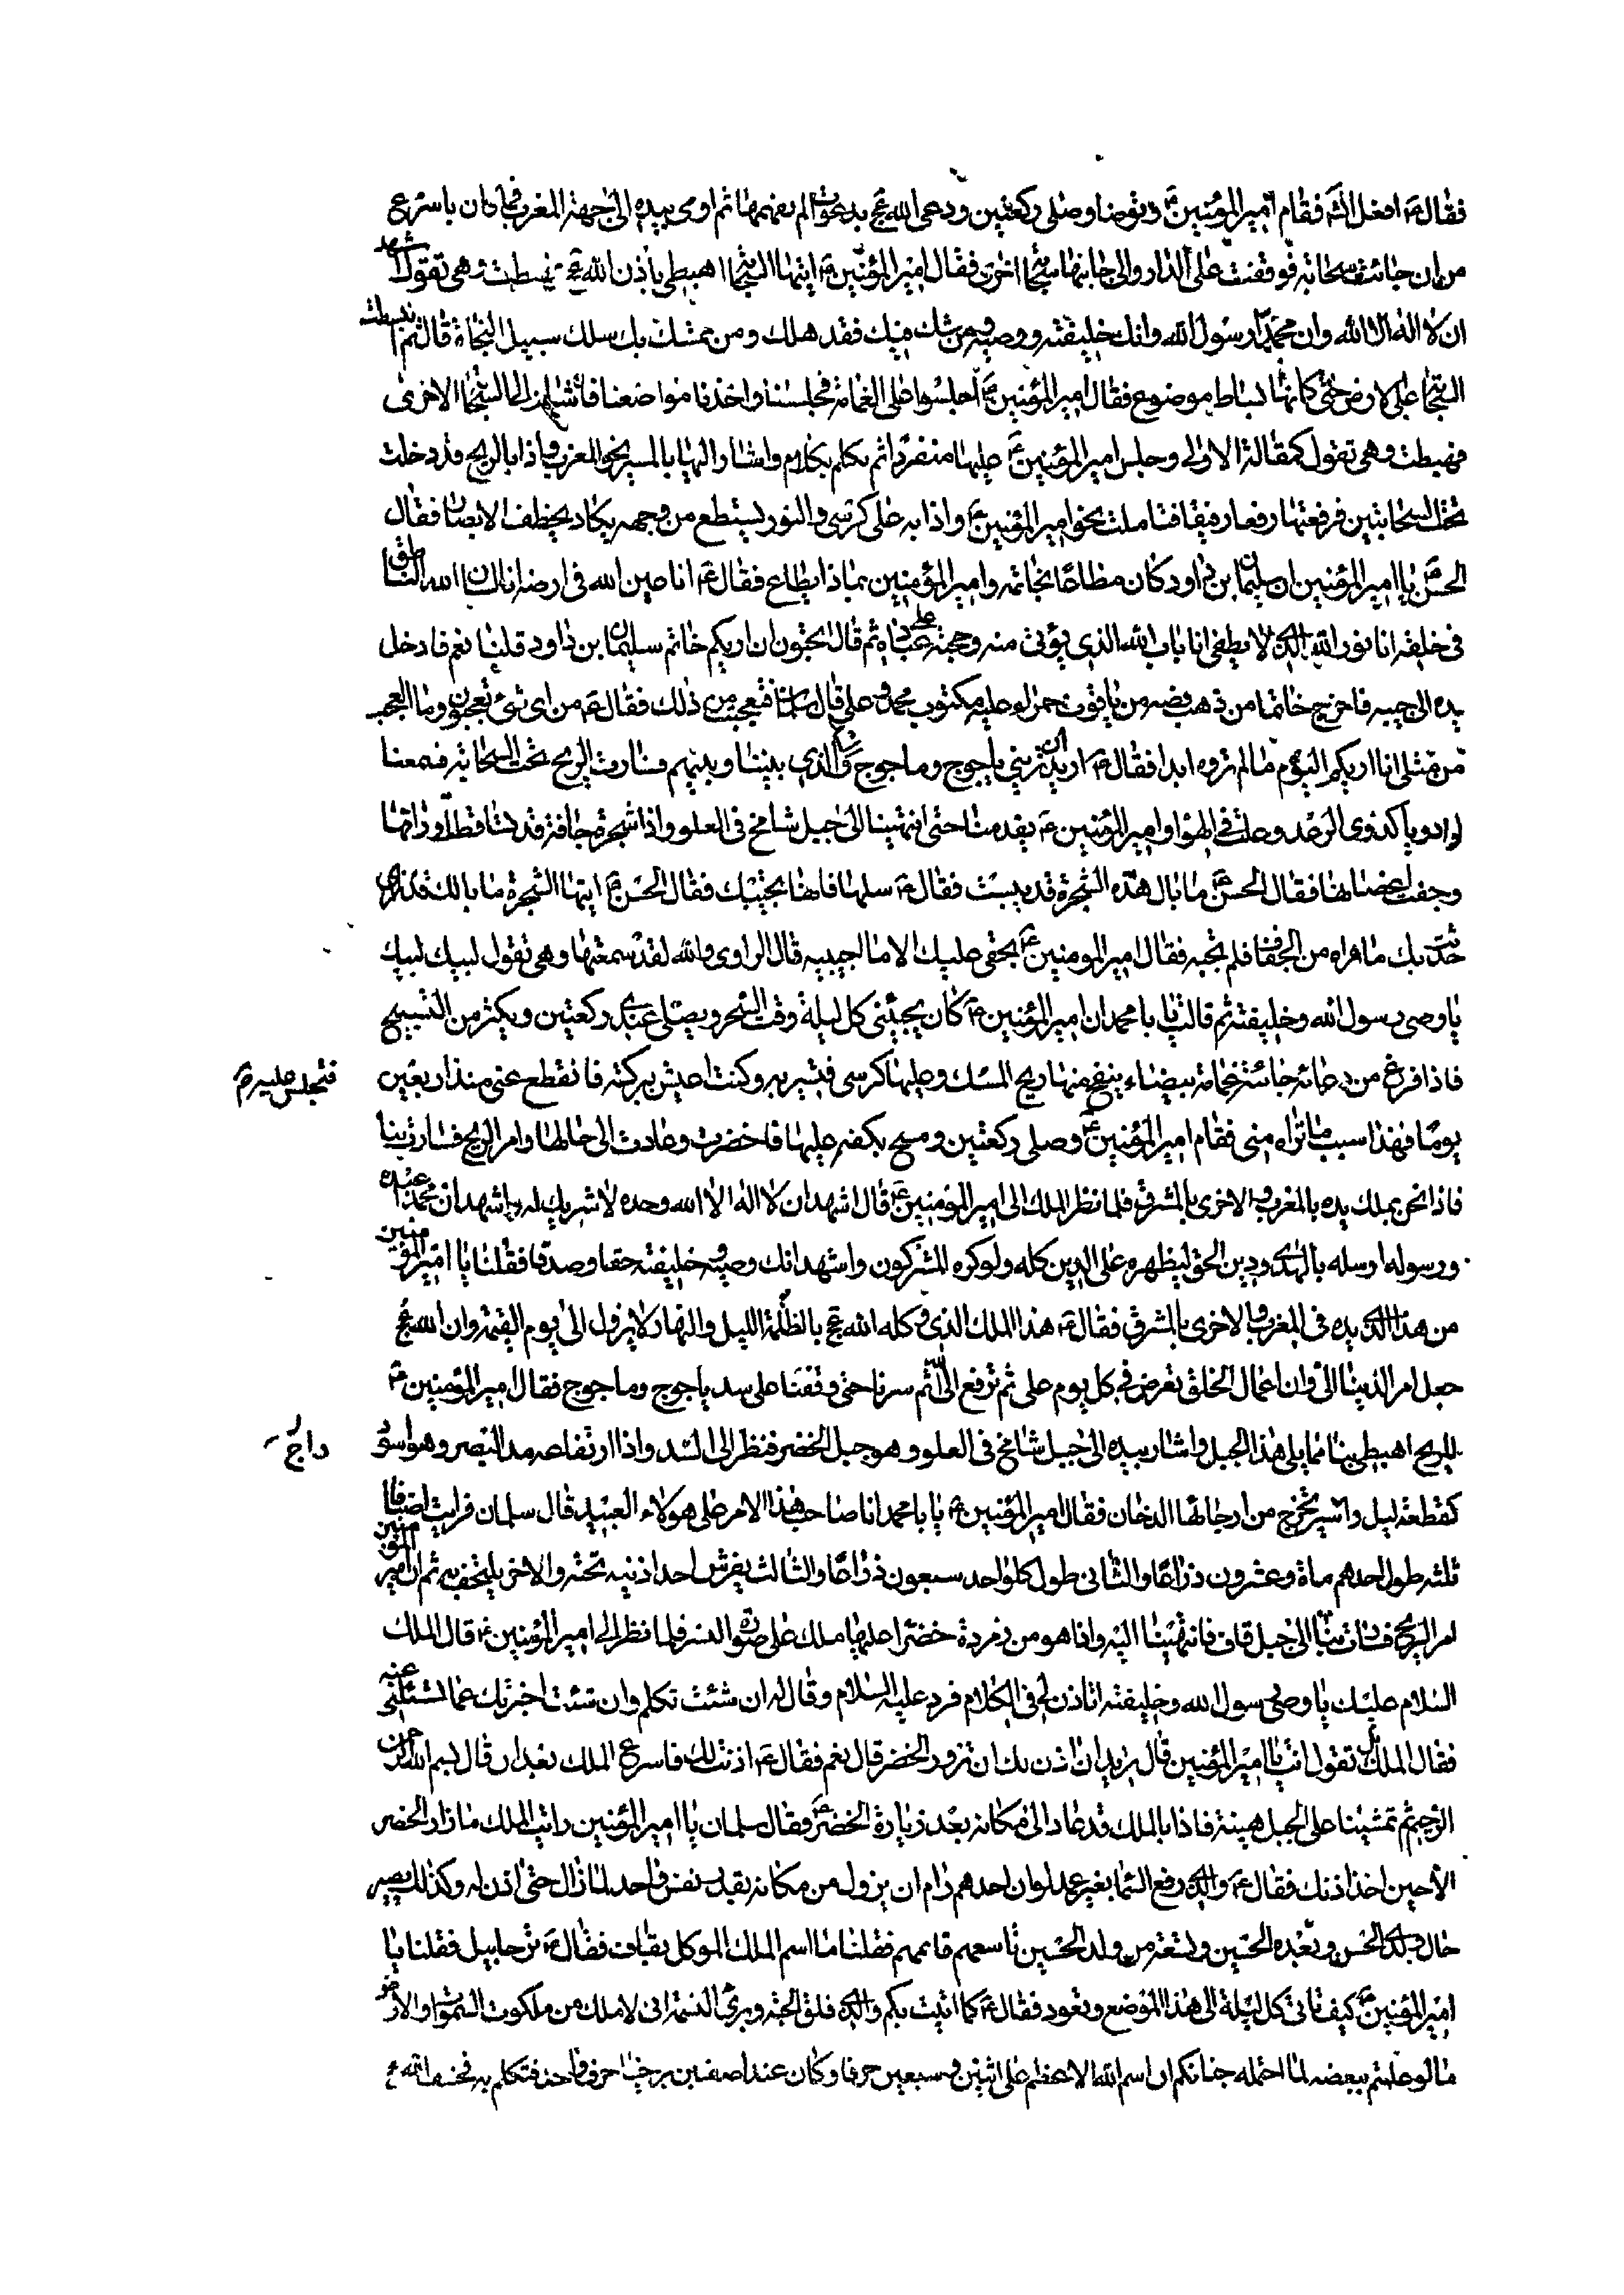 فقال ع افعل انش فقام امير المؤمنين ع وتوضا وصلى ركعتين ودعى الله عج بدعوات لم نفهمها ثم اومى بيده الى جهة المغرب فما كان باسرع
من ان جائت سحابة فوقفت على الدار والى جانبها سحابة اخرى فقال امير المؤمنين ع ايتها السحابة اهبطى باذن الله عج فهبطت وهى تقول اشهد
ان لا اله الا الله وان محمدا رسول الله وانك خليفته ووصيه من شك فيك فقد هلك ومن تمسك بك سلك سبيل النجاة قال ثم انبسطت
السحابة على الارض حتى كانها بساط موضوع فقال امير المؤمنين ع اجلسوا على الغمامة فجلسنا واخذنا مواضعنا فاشار الى السحابة الاخرى
فهبطت وهى تقول كمقالة الاولى وجلس امير المؤمنين ع عليها منفردا ثم تكلم بكلام واشار اليها بالمسير نحو المغرب واذا بالريح قد دخلت
تحت السحابتين فرفعتها رفعا رفيقا فتاملت نحو امير المؤمنين ع واذا به على كرسى والنور يسطع من وجهه يكاد يخطف الابصار فقال
الحسن ع يا امير المؤمنين ان سليمان بن داود كان مطاعا بخاتمه وامير المؤمنين بماذا يطاع فقال ع انا عين الله فى ارضه انا لسان الله الناطق
فى خلقه انا نور الله الذى لا يطفى انا باب الله الذى يؤتى منه وحجته على عباده ثم قال اتحبون ان اريكم خاتم سليمان بن داود قلنا نعم فادخل
يده الى جيبه فاخرج خاتما من ذهب فصه من ياقوت حمراء عليه مكتوب محمد وعلى قال سلمان فتعجبت من ذلك فقال ع من اى شئ تعجبون وما العجب
من مثلى انا اريكم اليوم ما لم تروه ابدا فقال ع اريد ان ترينى ياجوج وماجوج والسد الذى بيننا وبينهم فسارت الريح تحت السحابة فسمعنا
لها دويا كدوى الرعد وعلت فى الهواء وامير المؤمنين ع يقدمنا حتى انتهينا الى جبل شامخ فى العلو واذا شجرة جافة قد تساقطت اوراقها
وجفت اغصانها فقال الحسن ع ما بال هذه الشجرة قد يبست فقال ع سلها فانها تجيبك فقال الحسن ع ايتها الشجرة ما بالك قد نرى
حدث بك ما نراه من الجفاف فلم تجبه فقال امير المومنين ع بحقى عليك الا ما اجبتيه قال الراوى والله لقد سمعتها وهى تقول لبيك لبيك
يا وصى رسول الله وخليفته ثم قالت يا با محمد ان امير المؤمنين ع كان يجيئنى كل ليلة وقت السحر ويصلى عندى ركعتين ويكثر من التسبيح
فاذا فرغ من دعائه جائته غمامة بيضاء ينفح منها ريح المسك وعليها كرسى فتسير به وكنت اعيش ببركته فانقطع عنى منذ اربعين
فيجلس عليه ثم
يوما فهذا سبب ما تراه منى فقام امير المؤمنين ع وصلى ركعتين ومسح بكفه عليها فاخضرت وعادت الى حالها وامر الريح فسارت بنا
فاذا نحن بملك يده بالمغرب والاخرى بالمشرق فلما نظر الملك الى امير المؤمنين ع قال اشهد ان لا اله الا الله وحده لا شريك له واشهد ان محمدا عبده
ورسوله ارسله بالهدى ودين الحق ليظهره على الدين كله ولو كره المشركون واشهد انك وصيه وخليفته حقا وصدقا فقلنا يا امير المؤمنين
من هذا الذى يده فى المغرب والاخرى بالمشرق فقال ع هذا الملك الذى وكله الله عج بالظلمة الليل والنهار لا يزول الى يوم القيمة وان الله عج
جعل امر الدنيا الى وان اعمال الخلق تعرض فى كل يوم على ثم ترفع الى الله ثم سرنا حتى وقفنا على سد ياجوج وماجوج فقال امير المؤمنين ع
للريح اهبطى بنا مما يلى هذا الجبل واشار بيده الى جبل شامخ فى العلو وهو جبل الخضر فنظر الى السد واذا ارتفاعه مد البصر وهو اسود
كقطعة ليل يخرج من ارجائها الدخان فقال امير المؤمنين ع يا با محمد انا صاحب هذا الامر على هؤلاء العبيد قال سلمان فرايت اصنافا
ثلثه طول احدهم ماة وعشرون ذراعا والثانى طول كل واحد سبعون ذراعا والثالث يفرش احد اذنيه تحته والاخر يلتحف به ثم ان امير المؤمنين
امر الريح فسارت بنا الى جبل قاف فانتهينا اليه واذا هو من زمردة خضرا عليها ملك على صورة النسر فلما نظر الى امير المؤمنين ع قال الملك
السلام عليك يا وصى رسول الله وخليفته اتاذن لى فى الكلام فرد عليه السلام وقال له ان شئت تكلم وان شئت اخبرتك عما تسئلنى عنه
فقال الملك بل تقول انت يا امير المؤمنين قال تريد ان اذن لك ان تزور الخضر قال نعم فقال ع اذنت لك فاسرع الملك بعد ان قال بسم الله الرحمن
الرحيم ثم تمشينا على الجبل هنيئة فاذا بالملك قد عاد الى مكانه بعد زيارة الخضر ع فقال سلمان يا امير المؤمنين رايت الملك ما زار الخضر
الا حين اخذ اذنك فقال ع والذى رفع السماء بغير عمد لو ان احدهم رام ان يزول من مكانه بقدر نفس واحد لما زال حتى اذن له وكذلك يصير
حال ولدى الحسن وبعده الحسين وتسعة من ولد الحسين تاسعهم قائمهم فقلنا ما اسم الملك الموكل بقاف فقال ع ترجائيل فقلنا يا
امير المؤمنين ع كيف تاتى كل ليلة الى هذا الموضع وتعود فقال ع كما اتيت بكم والذى فلق الحبة وبرئ النسمة انى لاملك من ملكوت السموات والارض
ما لو علمتم ببعضه لما احتمله جنانكم ان اسم الله الاعظم على اثنين وسبعين حرفا وكان عند اصف بن برخيا حرف واحد فتكلم به فخسف الله ع